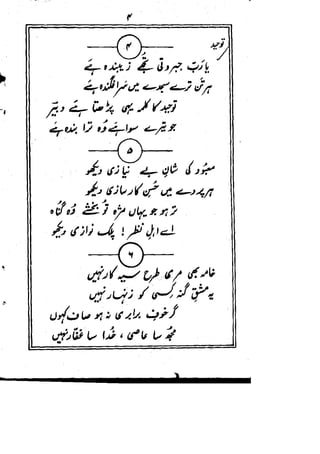 ۴
توحید
۴
یا رَب جبروتی تجھے زیبندہ ہے
ہر تن ترے سجدے میں سرافگندہ ہے
توحید کا کلمہ یہی پڑھتا ہے دبیر
جو تیرے سوا ہے وہ ترا بندہ ہے
۵
معبود کی شانِ بے نیازی دیکھو
ہر پردے میں حسنِ کارسازی دیکھو
تر ہو جو یہاں مژہ تو بخشے وہ گناہ
اے اہلِ نظر! پلک نوازی دیکھو
۶
خامہ بھی مری طرح سیہ کار نہیں
یہ مشقِ گنہ کسی کو زنہار نہیں
گر خوفِ برابری نہ ہو صاف کہوں
مجھ سا عاصی، خُدا سا غفّار نہیں